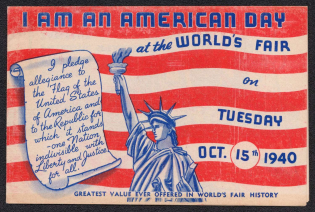 I AM AN AMERICAN DAY
at the WORLD'S FAIR
on
TUESDAY
OCT. 15th 1940
I pledge
allegiance to
the Flag of the
United States
of America and
to the Republic for
which it stands
-one Nation
indivisible with
Liberty and Justice
for all.
GREATEST VALUE EVER OFFERED IN WORLD'S FAIR HISTORY